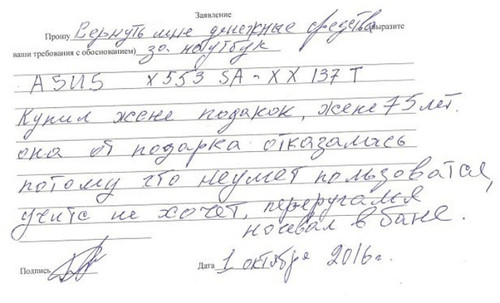 Заявление
Прошу Вернуть мне денежные средства (выразите
ваши требования с обоснованием) за ноутбук
ASUS X553 SA-XX 137 T
Купил жене подакок, жене 75 лет.
она от подарка отказалась
потому что неумет пользоватся,
учитс не хочет, переругался
ночевал в бане.
Подпись Дата 1 октября 2016г.